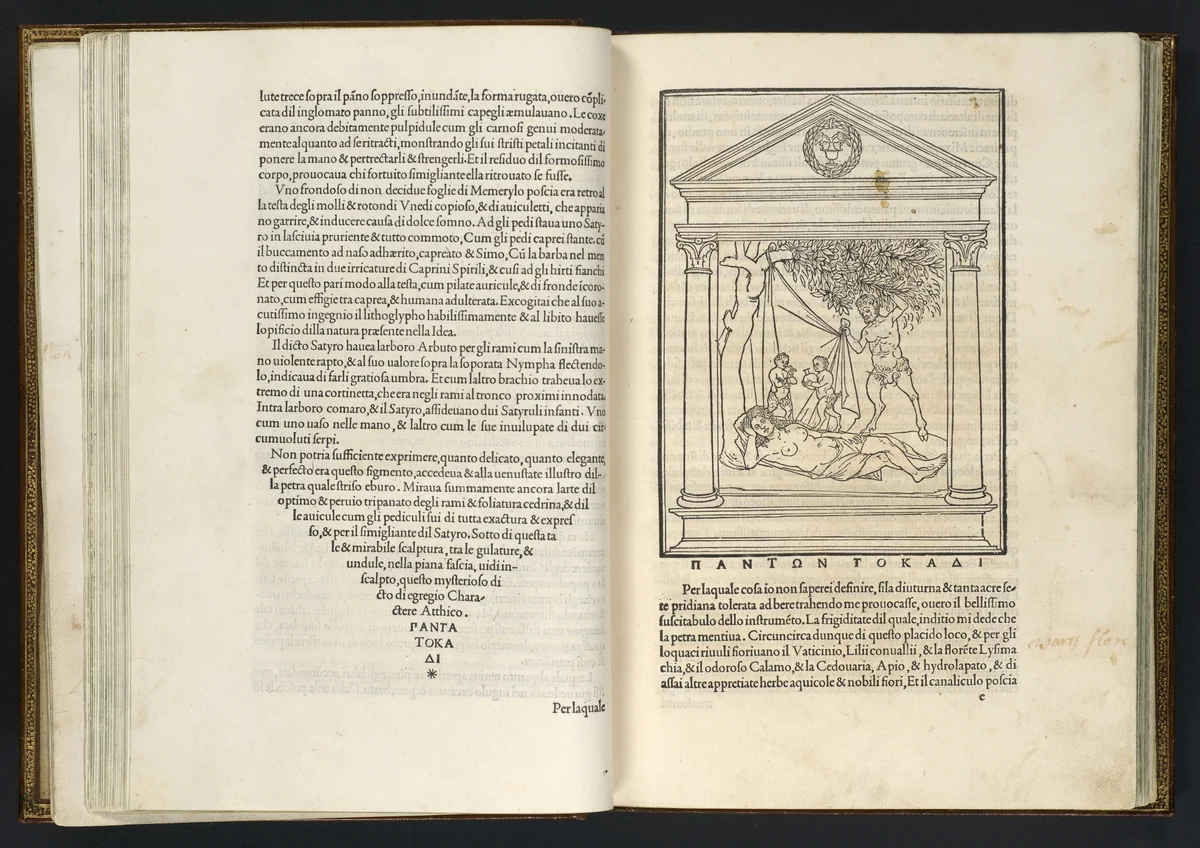 lute trece sopra il pãno soppresso, inundãte, la forma rugata, ouero cõpli,
cata dil inglomato panno, gli subtilissimi capegli æmulauano. Le coxe
erano ancora debitamente pulpidule cum gli carnosi genui moderata,
mente alquanto ad se ritracti, monstrando gli sui stristi petali incitanti di
ponere la mano & pertrectarli & strengerli. Et il residuo dil formosissimo
corpo, prouocaua chi fortuito simigliante ella ritrouato se fusse.
Vno frondoso di non decidue foglie di Memerylo poscia era retro al
la testa degli molli & rotondi Vnedi copioso, & di auiculetti, che apparia
no garrire, & inducere causa di dolce somno. Ad gli pedi staua uno Saty-
ro in lasciuia pruriente & tutto commoto, Cum gli pedi caprei stante. cũ
il buccamento ad naso adhærito, capreato & Simo, Cũ la barba nel men
to distincta in due irricature di Caprini Spirili, & cusi ad gli hirti fianchi
Et per questo pari modo alla testa, cum pilate auricule, & di fronde icoro-
nato, cum effigie tra caprea, & humana adulterata. Excogitai che al suo a-
cutissimo ingegnio il lithoglypho habilissimamente & al libito hauesse
lopificio dilla natura præsente nella Idea.
Il dicto Satyro hauea larboro Arbuto per gli rami cum la sinistra ma-
no uiolente rapto, & al suo ualore sopra la soporata Nympha flectendo-
lo, indicaua di farli gratiosa umbra. Et cum laltro brachio traheua lo ex-
tremo di una cortinetta, che era negli rami al tronco proximi innodata.
Intra larboro comaro, & il Satyro, assideuano dui Satyruli infanti. Vno
cum uno uaso nelle mano, & laltro cum le sue inuilupate di dui cir-
cumuoluti serpi.
Non potria sufficiente exprimere, quanto delicato, quanto elegante,
& perfecto era questo figmento, accedeua & alla uenustate illustro dil-
la petra quale striso eburo. Miraua summamente ancora larte dil
optimo & peruio tripanato degli rami & foliatura cedrina, & dil
le auicule cum gli pediculi sui di tutta exactura & expres
so, & per il simigliante dil Satyro. Sotto di questa ta
le & mirabile scalptura, tra le gulature, &
undule, nella piana fascia, uidi in-
scalpto, questo mysterioso di
cto di egregio Chara-
ctere Atthico.
ΓΑΝΤΑ
ΤΟΚΑ
ΔΙ
*
Per laquale
ΠΑΝΤΩΝ ΤΟΚΑΔΙ
Per laquale cosa io non saperei definire, si la diuturna & tanta acre se-
te pridiana tolerata ad bere trahendo me prouocasse, ouero il bellissimo
suscitabulo dello instrumẽto. La frigiditate dil quale, inditio mi dede che
la petra mentiua. Circuncirca dunque di questo placido loco, & per gli
loquaci riuuli fioriuano il Vaticinio, Lilii conuallii, & la florẽte Lysima
chia, & il odoroso Calamo, & la Cedouaria, Apio, & hydrolapato, & di
assai altre appretiate herbe aquicole & nobili fiori, Et il canaliculo poscia
e